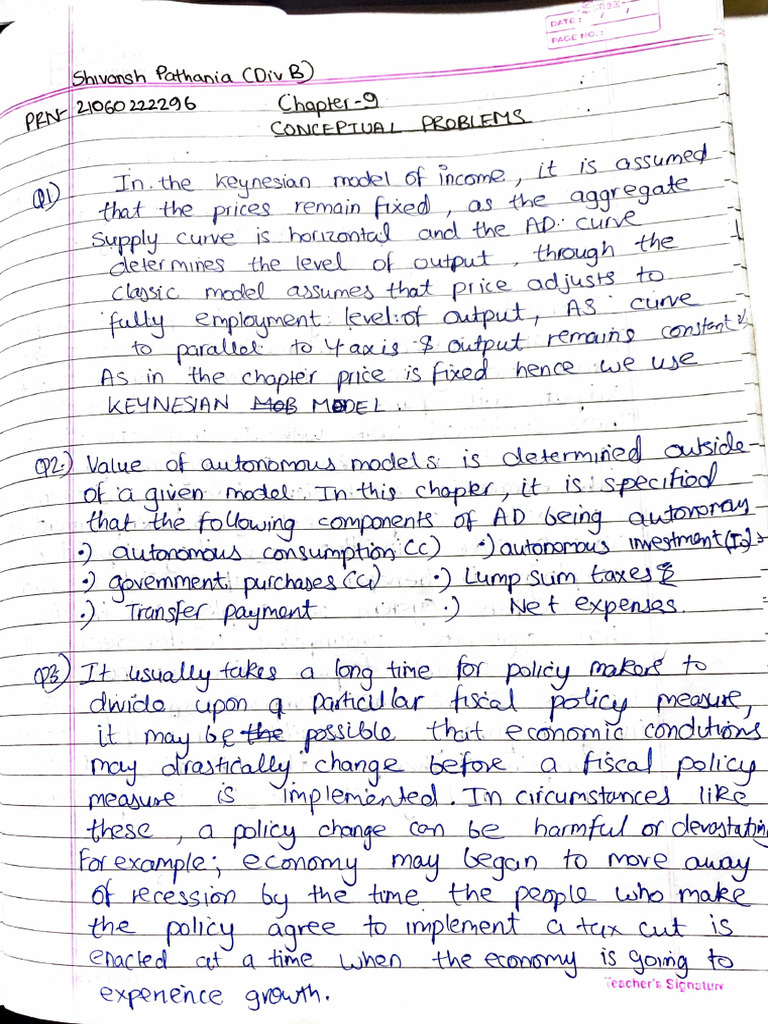 DATE: / /
PAGE NO.:
Shivansh Pathania (Div B)
PRN- 21060222296 Chapter-9
CONCEPTUAL PROBLEMS
Q1) In the Keynesian model of income, it is assumed
that the prices remain fixed, as the aggregate
supply curve is horizontal and the AD curve
determines the level of output, through the
classic model assumes that price adjusts to
fully employment level of output, AS curve
to parallel to Y axis & output remains constant
As in the chapter price is fixed hence we use
KEYNESIAN MODEL.
Q2.) Value of autonomous models is determined outside
of a given model. In this chapter, it is specified
that the following components of AD being autonomy
•) autonomous consumption (C) •) autonomous investment (I₀)
•) government purchases (G) •) Lump sum taxes
•) Transfer payment •) Net expenses.
Q3) It usually takes a long time for policy makers to
divide upon a particular fiscal policy measure,
it may be the possible that economic conditions
may drastically change before a fiscal policy
measure is implemented. In circumstances like
these, a policy change can be harmful or devastating
For example; economy may began to move away
of recession by the time the people who make
the policy agree to implement a tax cut is
enacted at a time when the economy is going to
experience growth.
Teacher's Signature